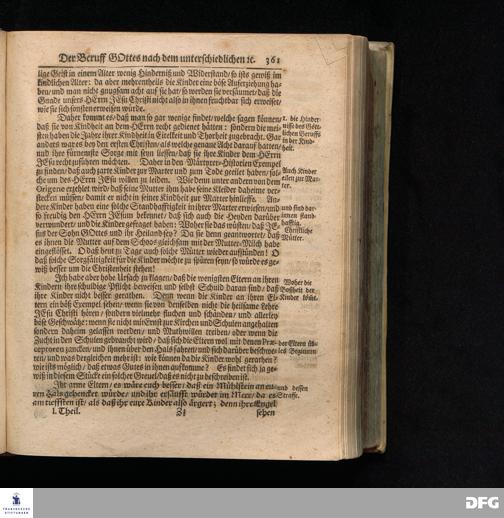 Der Beruff GOttes nach dem unterschiedlichen ꝛc. 361
lige Geist in einem Alter wenig Hinderniß und Widerstand/ so ists gewiß im
kindlichen Alter: da aber mehrentheils die Kinder eine böse Auferziehung ha-
ben/ und man nicht gnugsam acht auf sie hat/ so werden sie versäumet/ daß die
Gnade unsers HErrn JEsu Christi nicht also in ihnen fruchtbar sich erweiset/
wie sie sich sonsten erweisen würde.
Daher kommt es/ daß man so gar wenige findet/ welche sagen können/
daß sie von Kindheit an dem HErrn recht gedienet hätten: sondern die mei-
sten haben die Jahre ihrer Kindheit in Eitelkeit und Thorheit zugebracht. Gar
anders war es bey den ersten Christen/ als welche genaue Acht darauf hatten/
und ihre fürnemste Sorge mit seyn liessen/ daß sie ihre Kinder dem HErrn
JEsu recht zuführen möchten. Daher in den Märtyrer-Historien Exempel
zu finden/ daß auch zarte Kinder zur Marter und zum Tode geeilet haben/ sol-
che um des HErrn JEsu willen zu leiden. Wie denn unter andern von dem
Origene erzehlet wird/ daß seine Mutter ihm habe seine Kleider daheime ver-
stecken müssen/ damit er nicht in seiner Kindheit zur Marter hinlieffe. An-
dere Kinder haben eine solche Standhafftigkeit in ihrer Marter erwiesen/ und
so freudig den HErrn JEsum bekennet/ daß sich auch die Heyden darüber
verwundert/ und die Kinder gefraget haben: Woher sie das wüsten/ daß JE-
sus der Sohn GOttes und ihr Heiland sey? Da sie denn geantwortet/ daß
es ihnen die Mutter auf dem Schoos gleichsam mit der Mutter-Milch habe
eingeflösset. O daß heut zu Tage auch solche Mütter wieder aufstünden! O
daß solche Sorgfältigkeit für die Kinder möchte zu spüren seyn/ so würde es ge-
wiß besser um die Christenheit stehen!
Ich habe aber hohe Ursach zu klagen/ daß die wenigsten Eltern an ihren
Kindern ihre schuldige Pflicht beweisen und selbst Schuld daran sind/ daß
ihre Kinder nicht besser gerathen. Denn wenn die Kinder an ihren El-
tern ein böse Exempel sehen/ wenn sie von denselben nicht die heilsame Lehre
JEsu Christi hören/ sondern vielmehr fluchen und schänden/ und allerley
böse Geschwätz: wenn sie nicht mit Ernst zur Kirchen und Schulen angehalten
sondern daheim gelassen werden/ und Muthwillen treiben/ oder wenn die
Zucht in den Schulen gebraucht wird/ daß sich die Eltern wol mit denen Præ-
ceptoren zancken/ und ihnen über den Hals fahren/ und sich darüber beschwe-
ren/ und was dergleichen mehr ist: wie können da die Kinder wohl gerathen?
wie ists möglich/ daß etwas Gutes in ihnen aufkomme? Es findet sich ja ge-
wiß in diesem Stücke ein solcher Greuel/ daß es nicht zu beschreiben ist.
Ihr arme Eltern/ es wäre euch besser/ daß ein Mühlstein an eu-
ren Hals gehencket würde/ und ihr ersäufft würdet im Meer/ da es
am tieffsten ist/ als daß ihr eure Kinder also ärgert; denn ihre Engel
I. Theil. Zz sehen
1. die Hinder-
nisse des Gött-
lichen Beruffs
in der Kind-
heit.
Auch Kinder
eilen zur Mar-
ter.
und sind dar-
innen stand-
hafftig.
Christliche
Mütter.
Woher die
Bosheit der
Kinder komt,
der Eltern übe-
les Beginnen,
und dessen
Straffe.
FRANCKESCHE
STIFTUNGEN
DFG